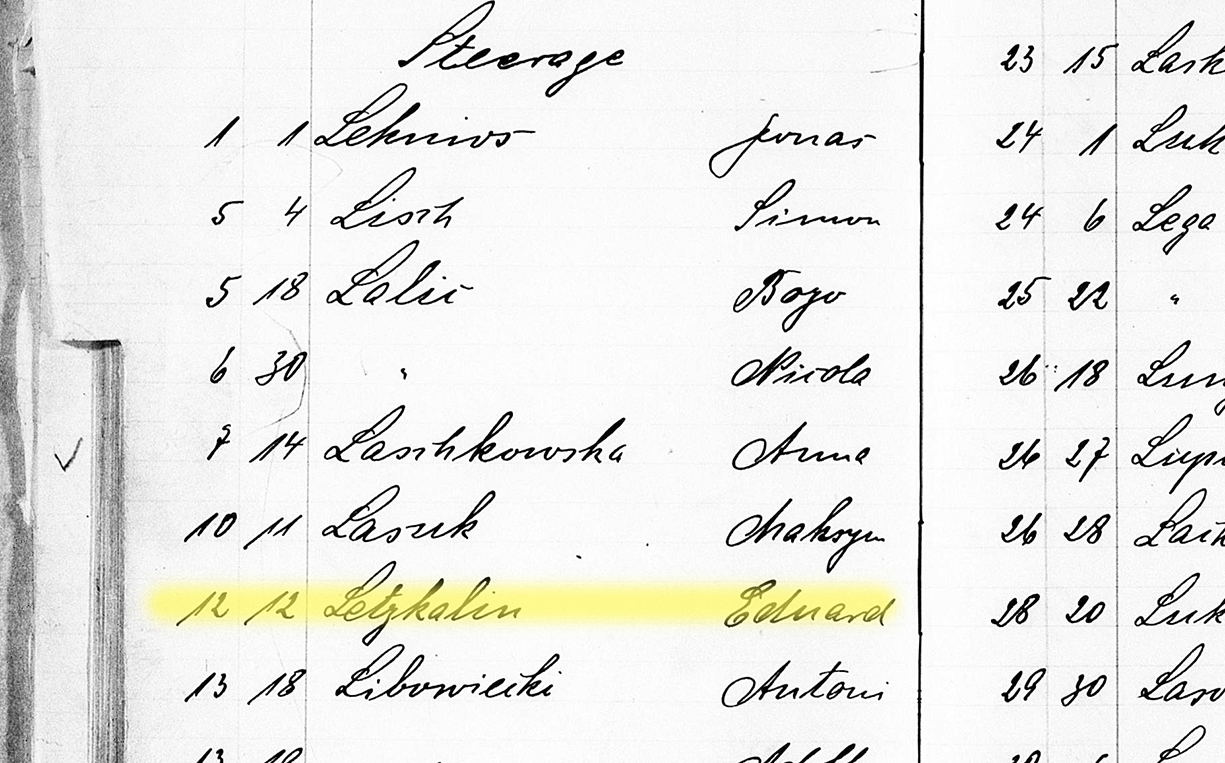 Steerage
1 1 Leknios Jonas
5 4 Lisch Simon
5 18 Lalić Bozo
6 30 " Nicola
7 14 Laschkowska Anna
10 11 Lasuk Maksym
12 12 Letzkalin Eduard
13 18 Libowiecki Antoni
13 18
23 15
24 1 Luk
24 6 Lega
25 22 "
26 18
26 27 Lup
26 28
28 20 Luk
29 30